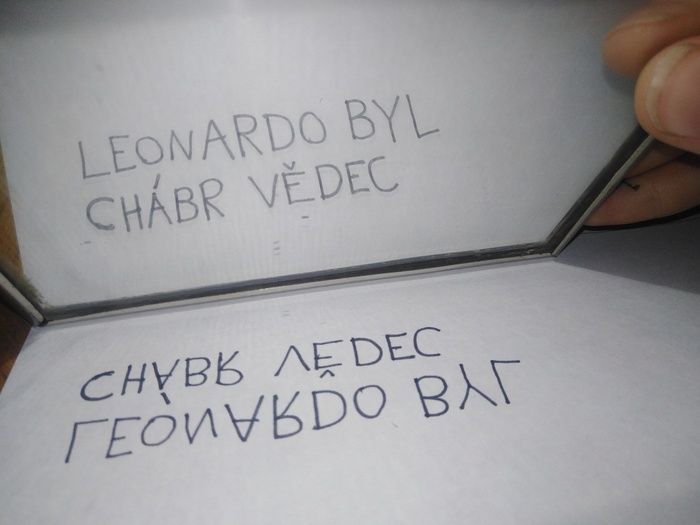 LEONARDO BYL
CHÁBR VĚDEC
CHÁBR VĚDEC
LEONARDO BYL